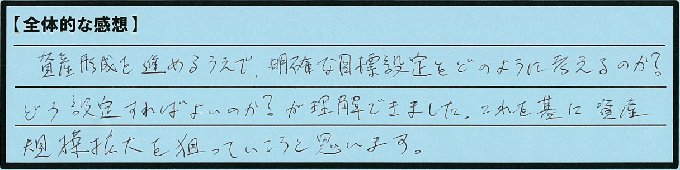 【全体的な感想】
資産形成を進めるうえで、明確な目標設定をどのように考えるのか?
どう設定すればよいのか?が理解できました。これを基に資産
規模拡大を狙っていこうと思います。